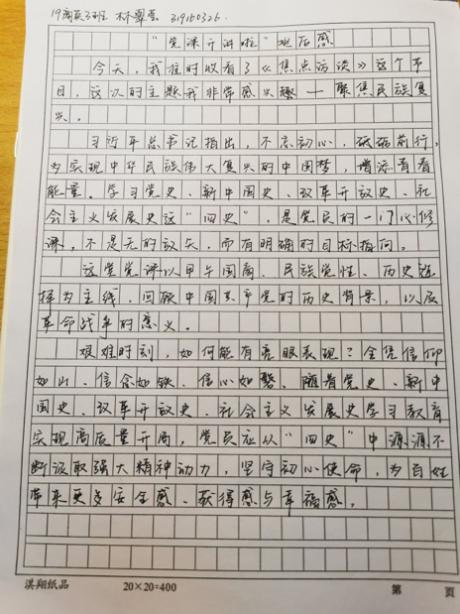 19商英3班 林翠 319150326.
“党课开讲啦”观后感
今天，我准时收看了《焦点访谈》这个节
目，这次的主题我非常感兴趣——聚焦民族复
兴。
习近平总书记指出，不忘初心，砥砺前行，
为实现中华民族伟大复兴的中国梦，增添青春
能量。学习党史、新中国史、改革开放史、社
会主义发展史这“四史”，是党员的一门必修
课，不是无的放矢，而有明确的目标指向。
这堂党课以甲午国殇、民族觉性、历史选
择为主线，回顾中国共产党的历史背景，以及
革命战争的意义。
艰难时刻，如何能有亮眼表现？全凭信仰
如山、信念如铁、信心如磐。随着党史、新中
国史、改革开放史、社会主义发展史学习教育
实现高质量开局，党员应从“四史”中源源不
断汲取强大精神动力，坚守初心使命，为百姓
带来更多安全感、获得感与幸福感。
淇翔纸品 20×20=400 第 页